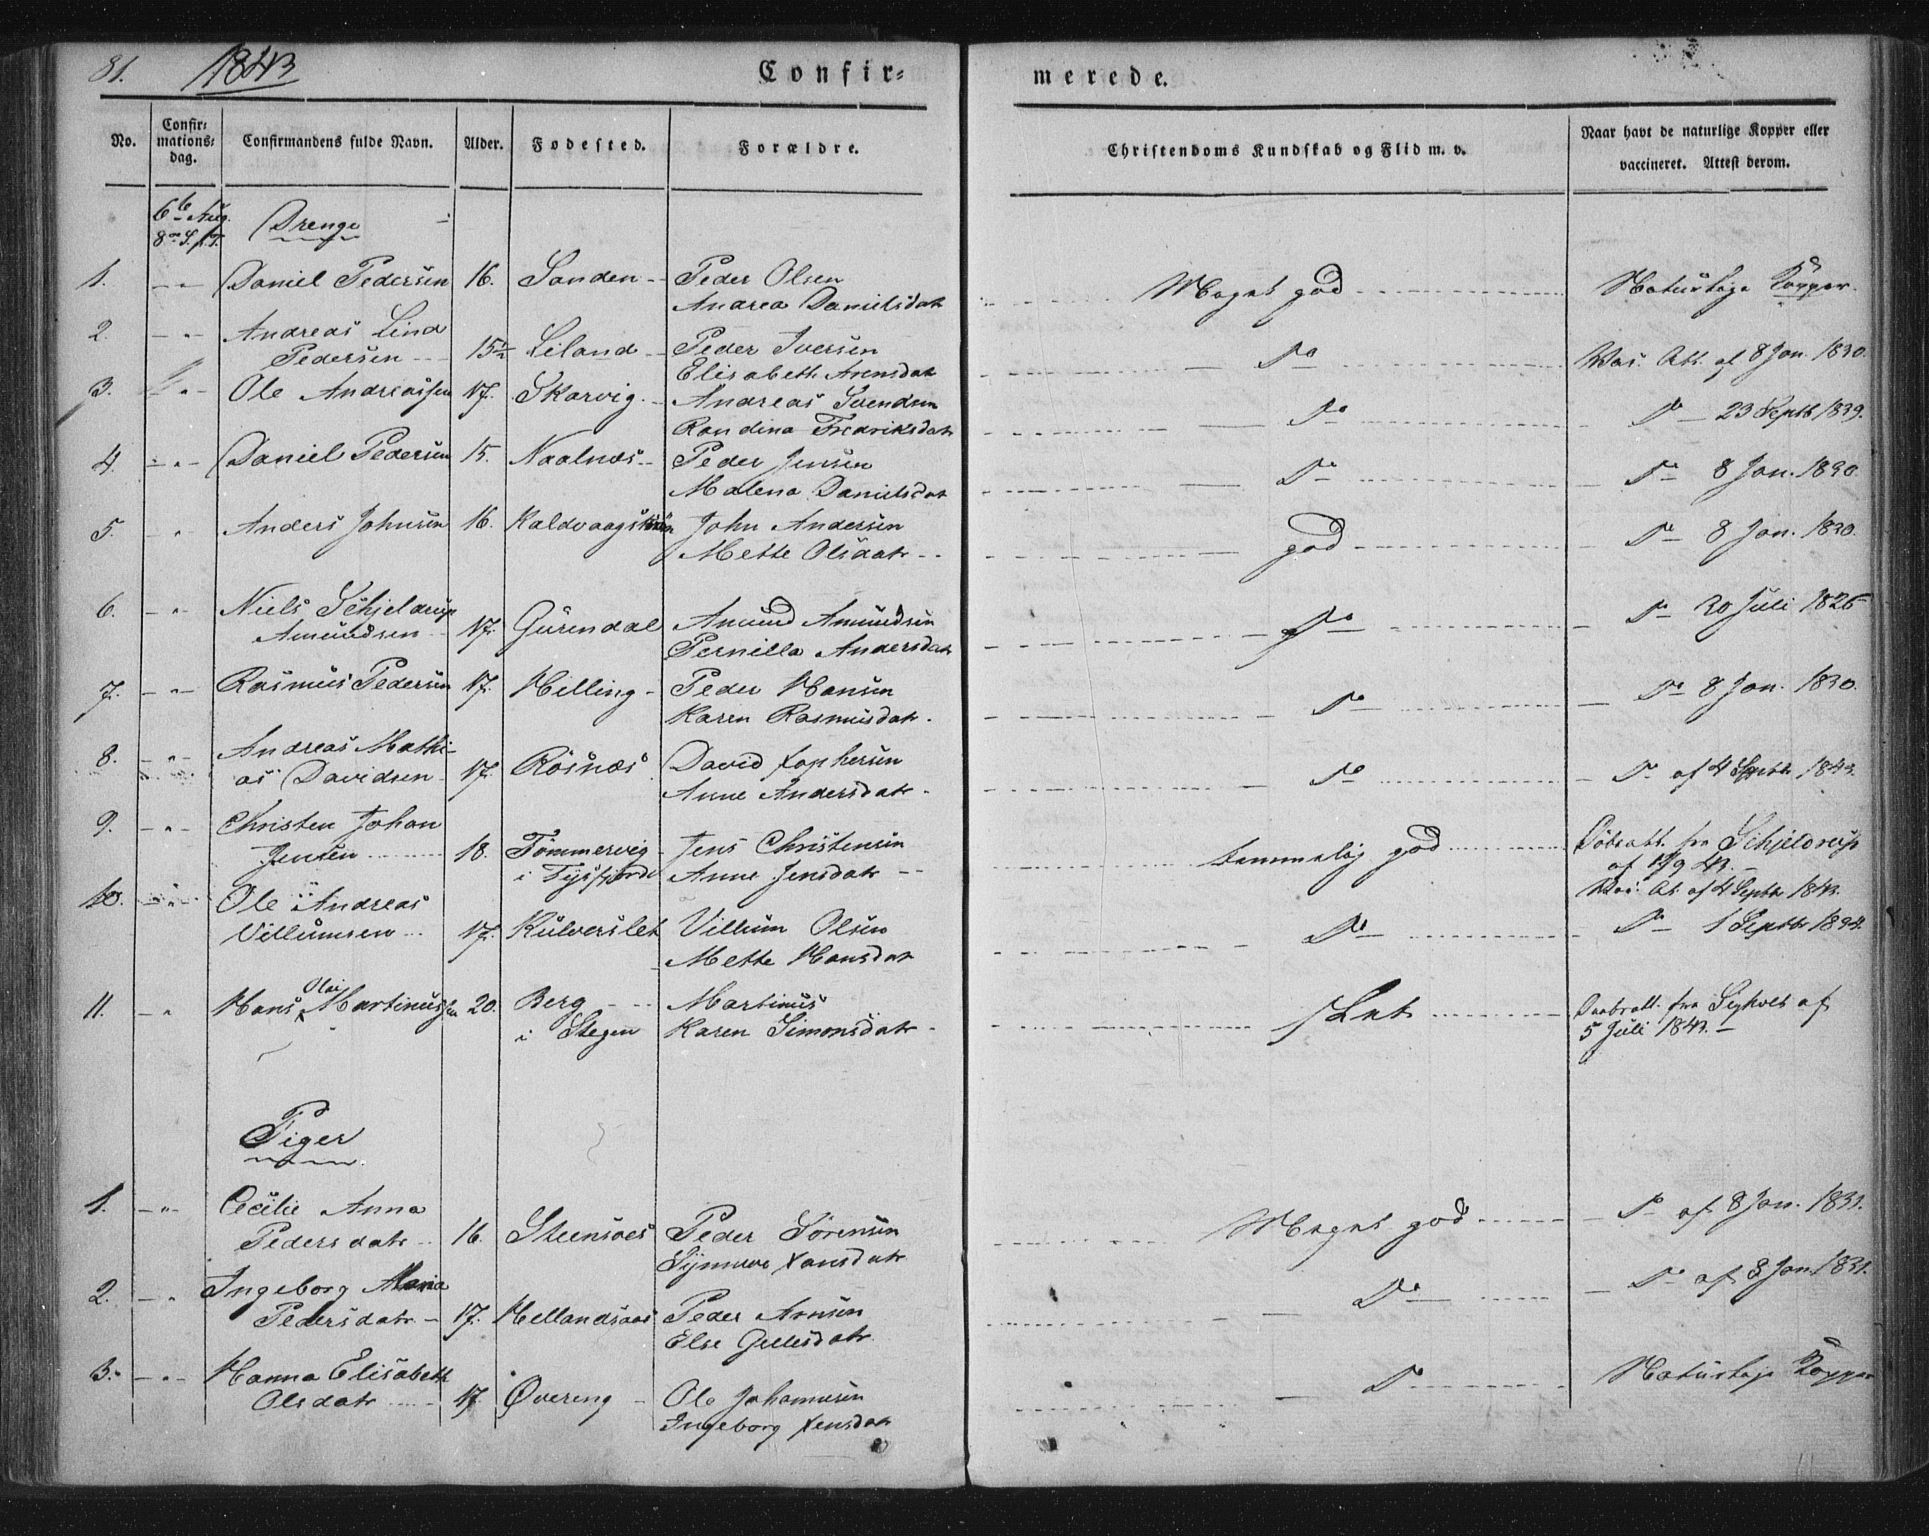 81. 1843 Confir= merede.
No. Confir= mations= dag. Confirmandens fulde Navn. Alder. Fødested. Forældre. Christendoms Kundskab og Flid m. v. Naar havt de naturlige Kopper eller vaccineret. Attest derom.
6 Aug.
Drenge
1. Daniel Pedersen 16. Sanden Peder Olsen Meget god Naturlige Kopper.
Andrea Danielsdatr
2. Andreas Lind
Pedersen 15½ Leland Peder Iversen Do Vac. Att. af 8 Jan. 1830.
Elisabeth Arensdatr
3. Ole Andreassen 17. Skarvig. Andreas Svendsen Do Do 23 Septb 1839.
Rondina Fredriksdatr
4. Daniel Pedersen 15. Naalnæs Peder Jensen Do Do 8 Jan. 1830.
Malena Danielsdatr
5. Anders Johnsen 16. John Andersen god Do 8 Jan. 1830.
Mette Olsdatr
6. Niels Schjeldrup
Amundsen 17. Gurendal Amund Amundsen Do Do 20 Juli 1826
Pernilla Andersdatr
7. Rasmus Pedersen 17. Helling Peder Hansen Do Do 8 Jan. 1830.
Karen Rasmusdatr.
8. Andreas Mathi-
as Davidsen 17. Rösnæs David Xophersen Do Do af 4 Septb 1843.
Anne Andersdatr.
9. Christen Johan
Jensen 18. Tömmervig Jens Christensen temmelig god Döbsatt. fra Schjeldrup
i Tysfjord Anne Jensdatr af 1/9 43.
Vac. At. af 4 Septbr 1843.
10. Ole Andreas
Villumsen 17. Kulverslet Villum Olsen Do Do 1 Septbr 1834.
Mette Hansdatr
11. Hans Olai Martinussen 20. Berg Martinus slet Daabsatt. fra af
i Stegen Karen Simonsdatr 5 Juli 1843.
Piger
1. Cecilie Anna
Pedersdatr 16. Steensoes Peder Sörensen Meget god Do af 8 Jan. 1831.
Synneve Hansdatr
2. Ingeborg Maria
Pedersdatr 17. Hellandsaas Peder Arnsen Do Do af 8 Jan 1831.
Else
3. Hanna Elisabeth
Olsdatr 17. Øvereng Ole Johannesen Do Naturlige Kopper
Ingeborg Jensdatr